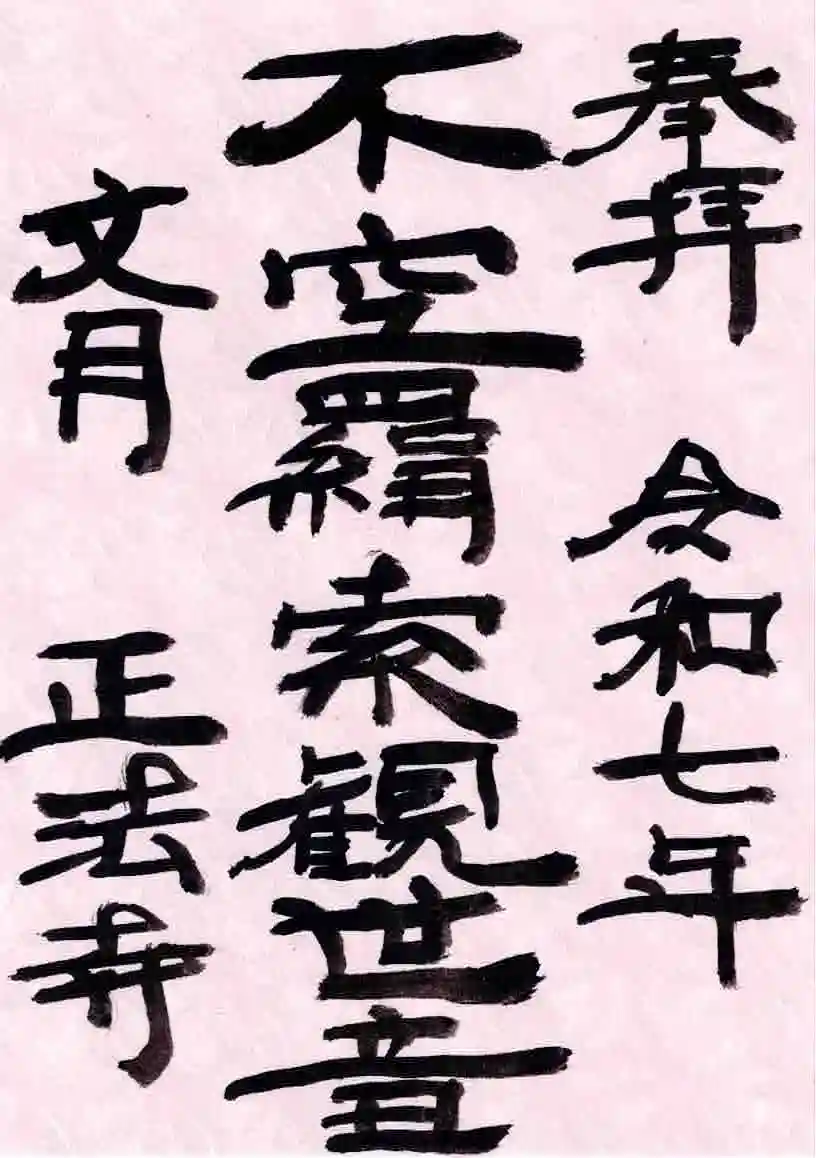 奉拝　令和七年
不空羂索観世音
文月　正法寺